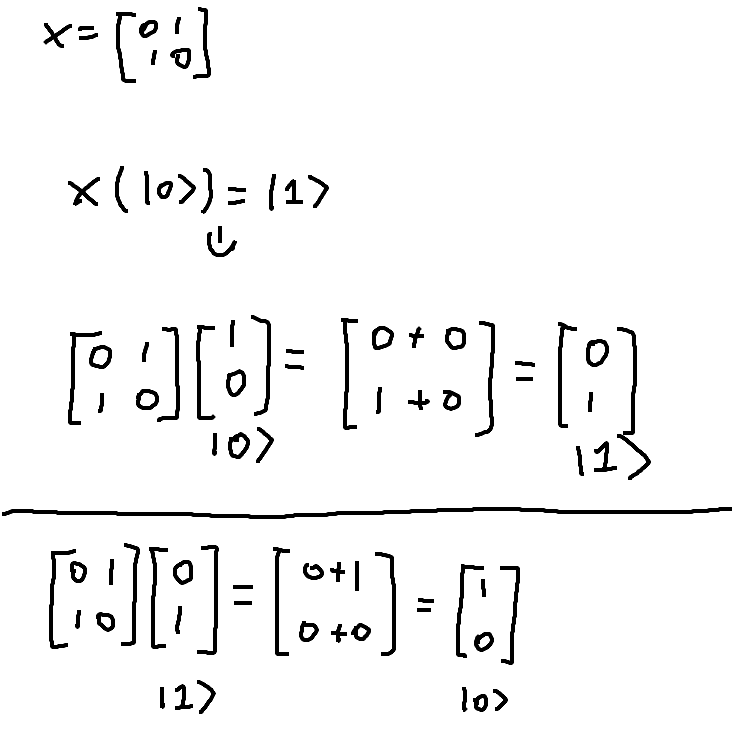 X = [0 1
1 0]
X(|0>) = |1>
[0 1
1 0] [1
0] = [0 + 0
1 + 0] = [0
1]
|0>
|1>
[0 1
1 0] [0
1] = [0+1
0+0] = [1
0]
|1>
|0>